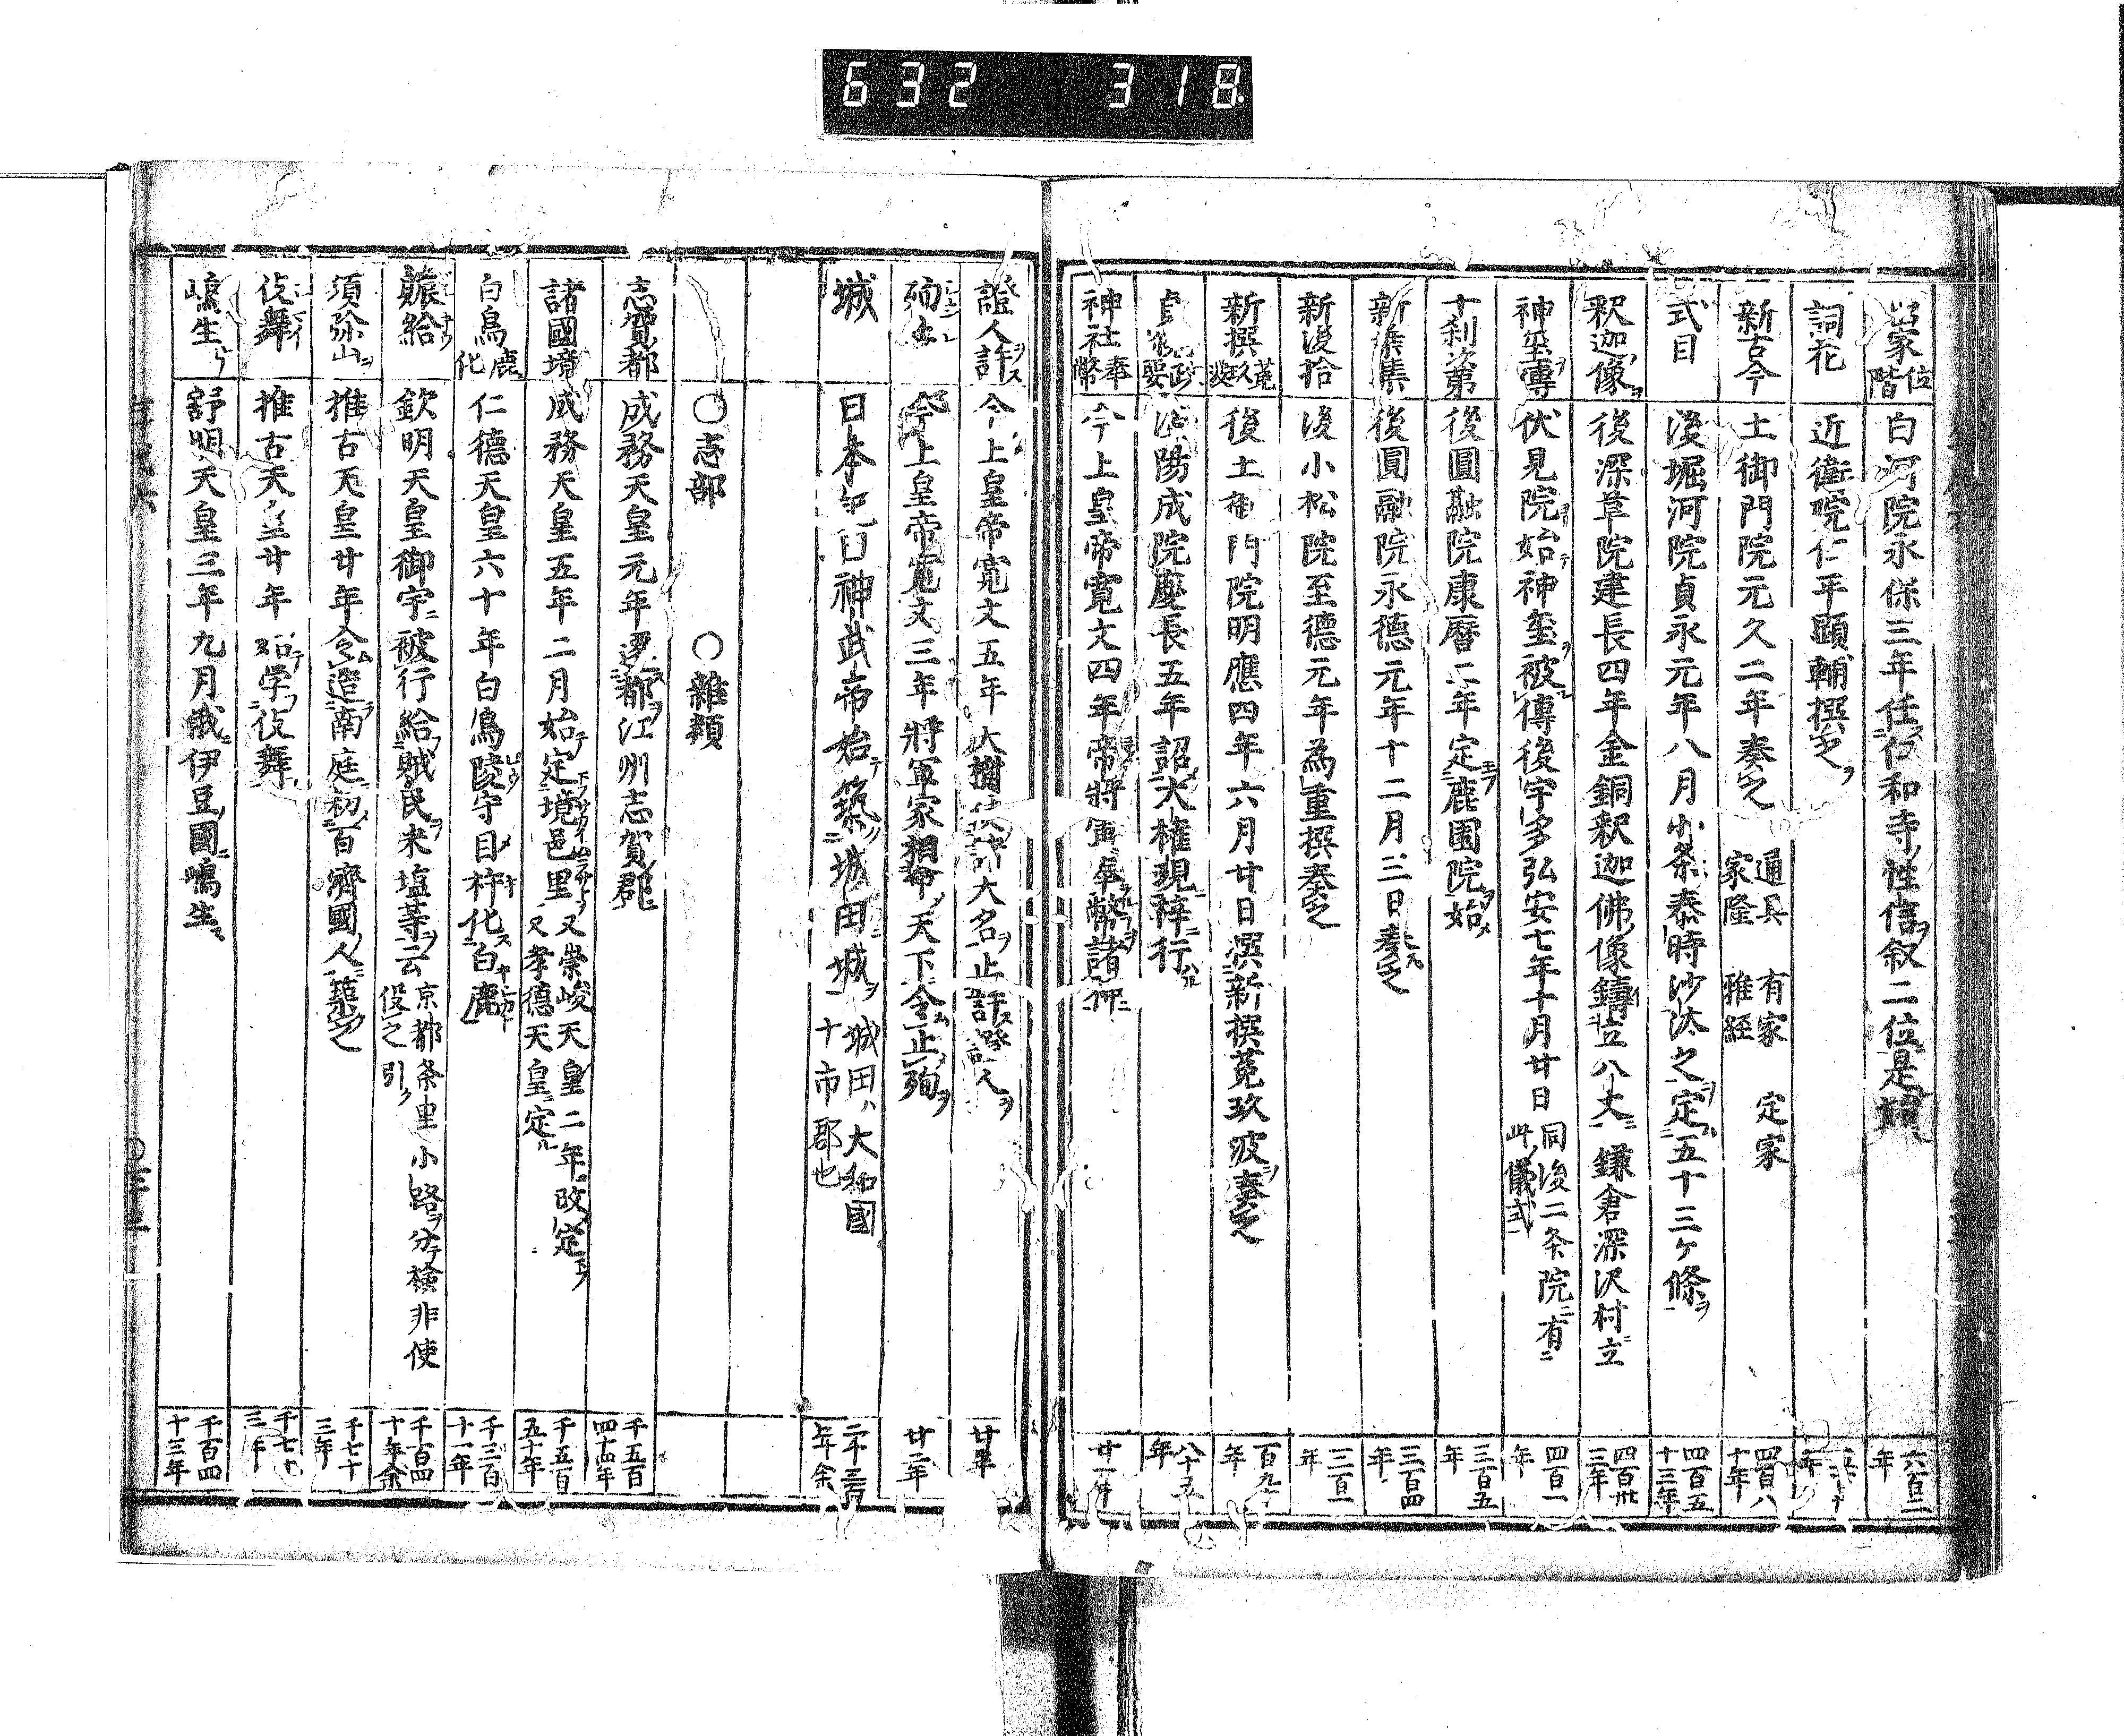 632 318
出家位階 白河院永保三年任仁和寺性信叙二位是 六百二年
詞花 近衛院仁平顕輔撰之 年
新古今 土御門院元久二年奏之 通具 有家 定家 家隆 雅経 四百八十年
式目 後堀河院貞永元年八月小条泰時沙汰之定五十三ケ條 四百五十三年
釈迦像 後深草院建長四年金銅釈迦佛像鑄立八丈鎌倉深沢村立 四百卅三年
神璽傳 伏見院始神璽被傳後宇多弘安七年十月廿日 同後二条院有此儀式 四百一年
十刹次第 後圓融院康暦二年定鹿園院始 三百五年
新葉集 後圓融院永德元年十二月三日奏之 三百四年
新後拾 後小松院至德元年為重撰奏之 三百一年
新撰菟玖波 後土御門院明應四年六月廿日撰新撰菟玖波奏之 百九十年
貞観政要 後陽成院慶長五年詔大権現梓行 八十五年
神社奉幣 今上皇帝寛文四年帝將軍奉幣諸 廿一年
證人許 今上皇帝寛文五年大樹 許大名止 證人 廿年
殉止 今上皇帝寛文三年將軍家相命天下令止殉 廿二年
城 日本 神武帝始築城田城 城田ハ大和國十市郡也 二千三百年余
○志部 ○雜類
志賀都 成務天皇元年遷都江州志賀郡 千五百四十四年
諸國境 成務天皇五年二月始定境邑里 又崇峻天皇二年改定 又孝德天皇定 千五百五十年
白鳥化鹿 仁德天皇六十年白鳥陵守目杵化白鹿 千三百十一年
賑給 欽明天皇御宇被行給賊民米塩等云 京都条里小路ヲ分テ検非使役之引 千百四十年余
須弥山 推古天皇廿年令造南庭初百濟國人築之 千七十三年
伎舞 推古天皇廿年始学伎舞 千七十三年
嶋生 舒明天皇三年九月俄伊豆國嶋生 千百四十三年